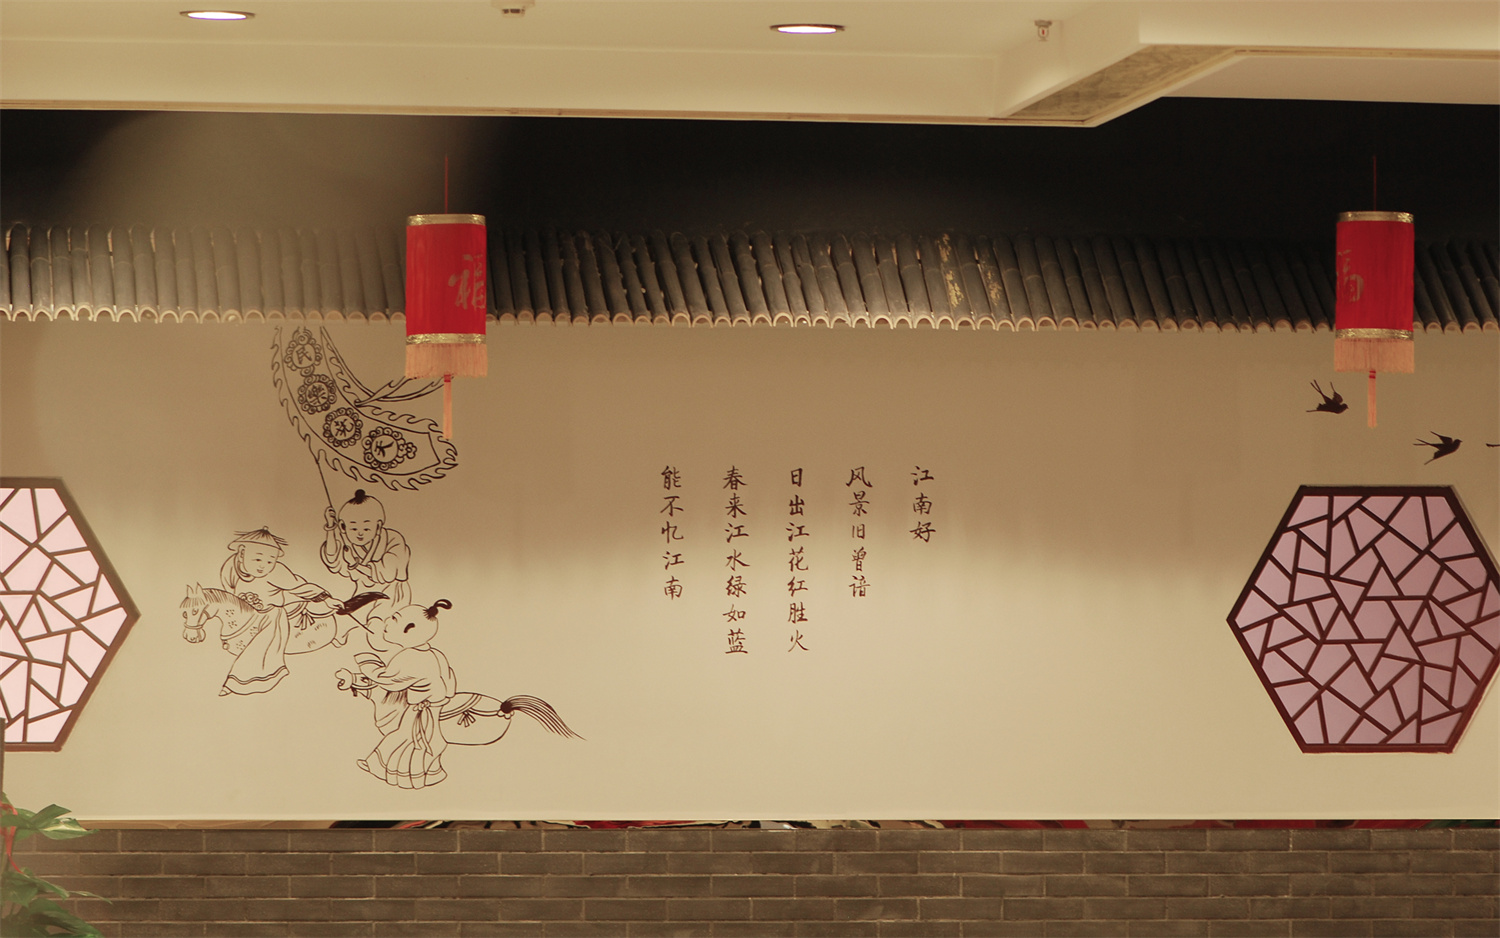 江南好
风景旧曾谙
日出江花红胜火
春来江水绿如蓝
能不忆江南
福